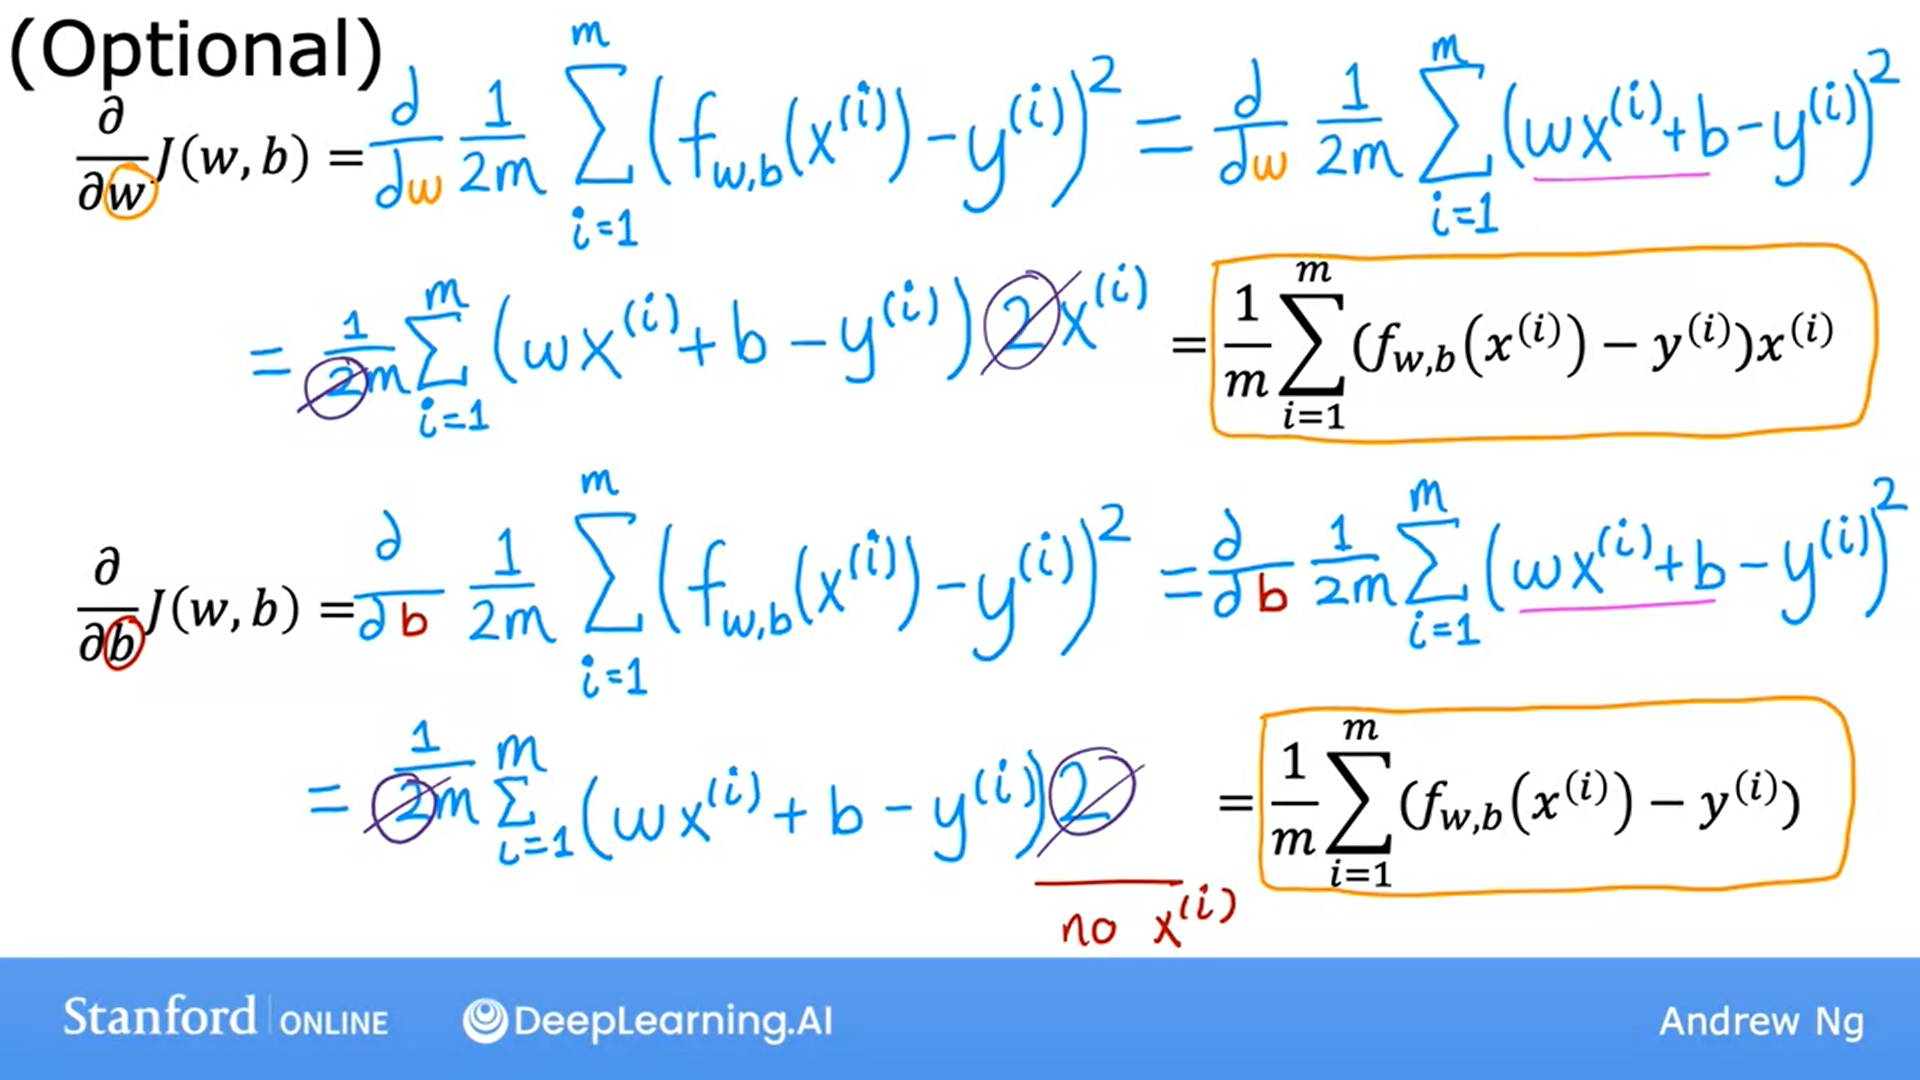 (Optional)
∂/∂w J(w, b) = ∂/∂w 1/2m ∑_{i=1}^{m} (f_{w,b}(x^{(i)}) − y^{(i)})^2 = ∂/∂w 1/2m ∑_{i=1}^{m} (wx^{(i)} + b − y^{(i)})^2
= 1/2m ∑_{i=1}^{m} (wx^{(i)} + b − y^{(i)}) 2 x^{(i)} = 1/m ∑_{i=1}^{m} (f_{w,b}(x^{(i)}) − y^{(i)})x^{(i)}
∂/∂b J(w, b) = ∂/∂b 1/2m ∑_{i=1}^{m} (f_{w,b}(x^{(i)}) − y^{(i)})^2 = ∂/∂b 1/2m ∑_{i=1}^{m} (wx^{(i)} + b − y^{(i)})^2
= 1/2m ∑_{i=1}^{m} (wx^{(i)} + b − y^{(i)}) 2 = 1/m ∑_{i=1}^{m} (f_{w,b}(x^{(i)}) − y^{(i)})
no x^{(i)}
Stanford ONLINE DeepLearning.AI Andrew Ng